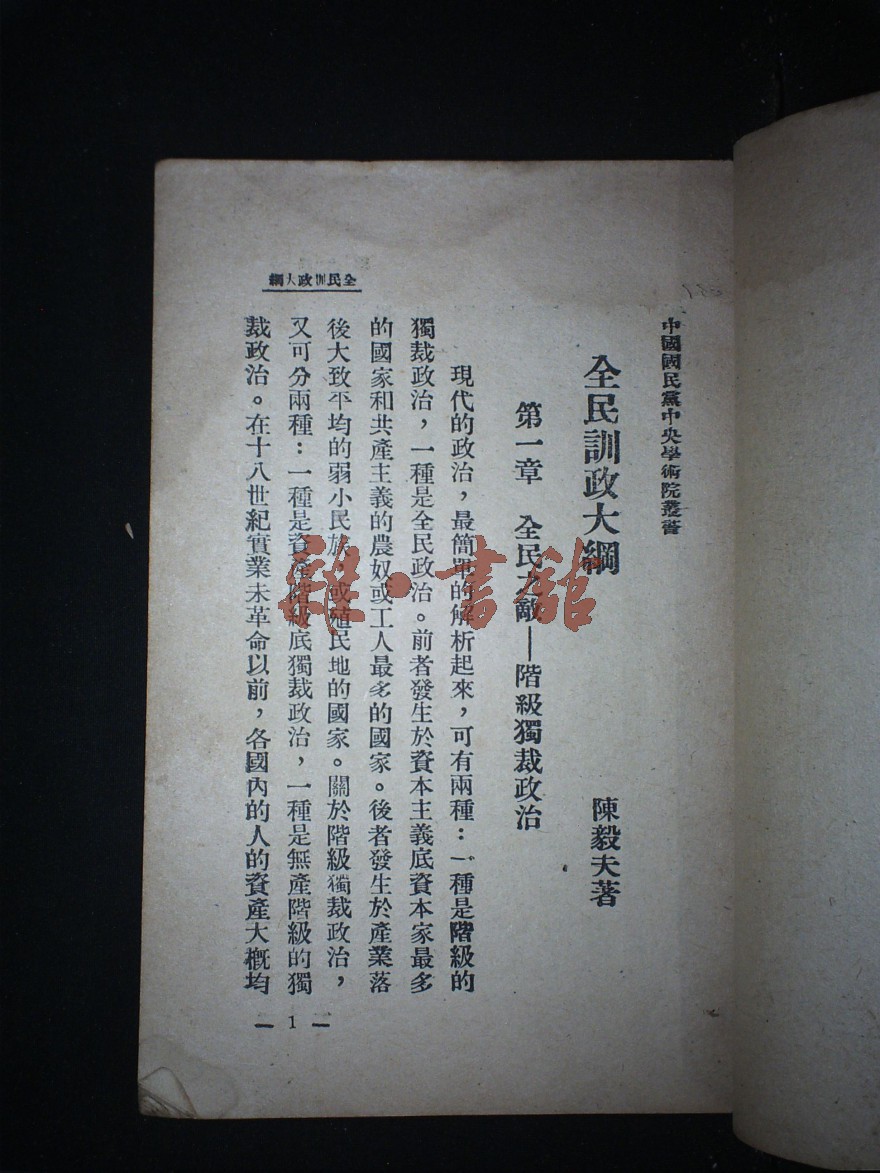 中國國民黨中央學術院叢書
全民訓政大綱
陳毅夫著
第一章　全民之敵—階級獨裁政治
現代的政治，最簡單的解析起來，可有兩種：一種是階級的
獨裁政治，一種是全民政治。前者發生於資本主義底資本家最多
的國家和共產主義的農奴或工人最多的國家。後者發生於產業落
後大致平均的弱小民族，或殖民地的國家。關於階級獨裁政治，
又可分兩種：一種是資產階級底獨裁政治，一種是無產階級的獨
裁政治。在十八世紀實業未革命以前，各國內的人的資產大概均
全民訓政大綱
— 1 —
雜·書館